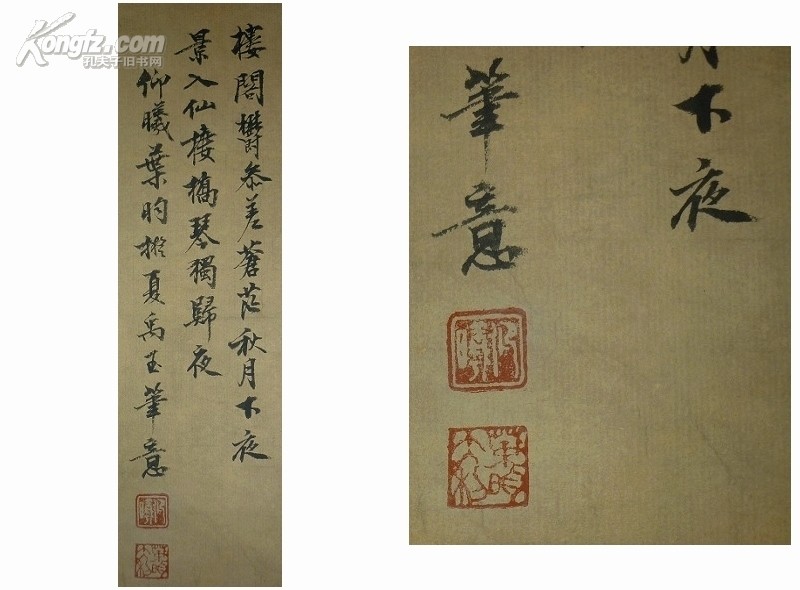 Kongfz.com
孔夫子旧书网
樓閣鬱參差蒼茫秋月下夜
景入仙攜琴獨歸夜
仰曦葉昀擬夏禹玉筆意
仰曦
月下夜
筆意
仰曦